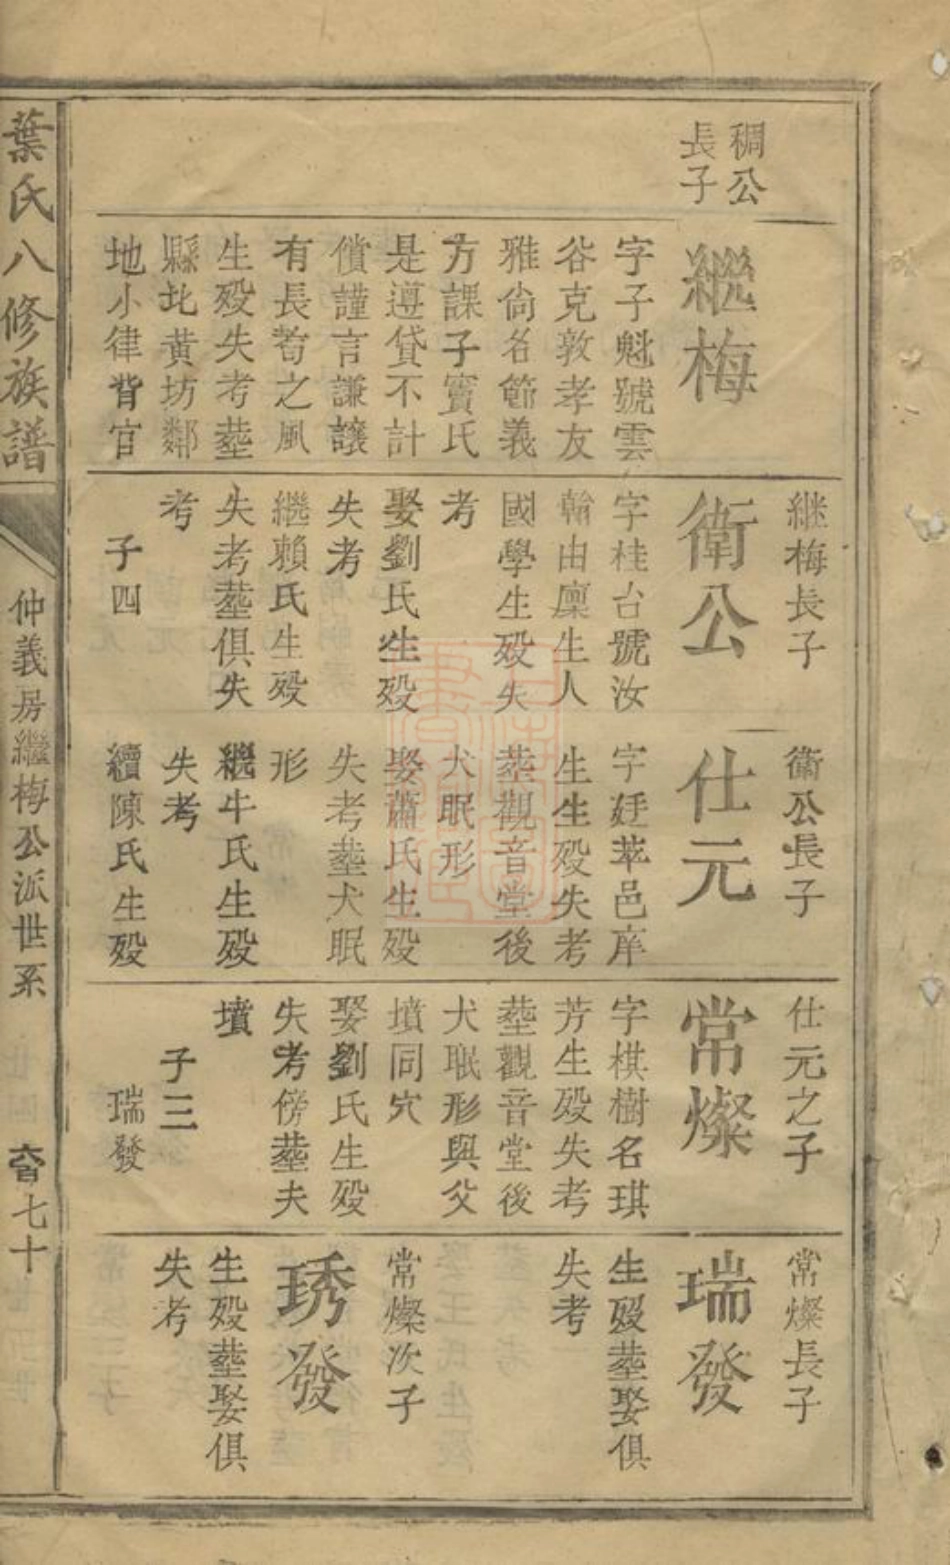 稠公
長子
繼梅
字子魁號雲
谷克敦孝友
雅尙名節義
方課子竇氏
是遵貸不計
償謹言謙讓
有長者之風
生殁失考塟
縣北黄坊鄰
地小律背官
继梅長子
衛公
字桂台號汝
翰由廩生人
國學生殁失
考
娶劉氏生殁
失考
繼賴氏生殁
失考塟俱失
考
子四
衛公長子
仕元
字廷苹邑庠
生生殁失考
塟觀音堂後
犬眠形
娶蕭氏生殁
失考塟犬眠
形
繼牛氏生殁
失考
續陳氏生殁
仕元之子
常燦
字棋樹名琪
芳生殁失考
塟觀音堂後
犬眠形與父
墳同穴
娶劉氏生殁
失考傍塟夫
墳
子三
瑞發
常燦長子
瑞發
生殁塟娶俱
失考
常燦次子
琇發
生殁塟娶俱
失考
葉氏八修族譜
仲義房繼梅公派世系
七十